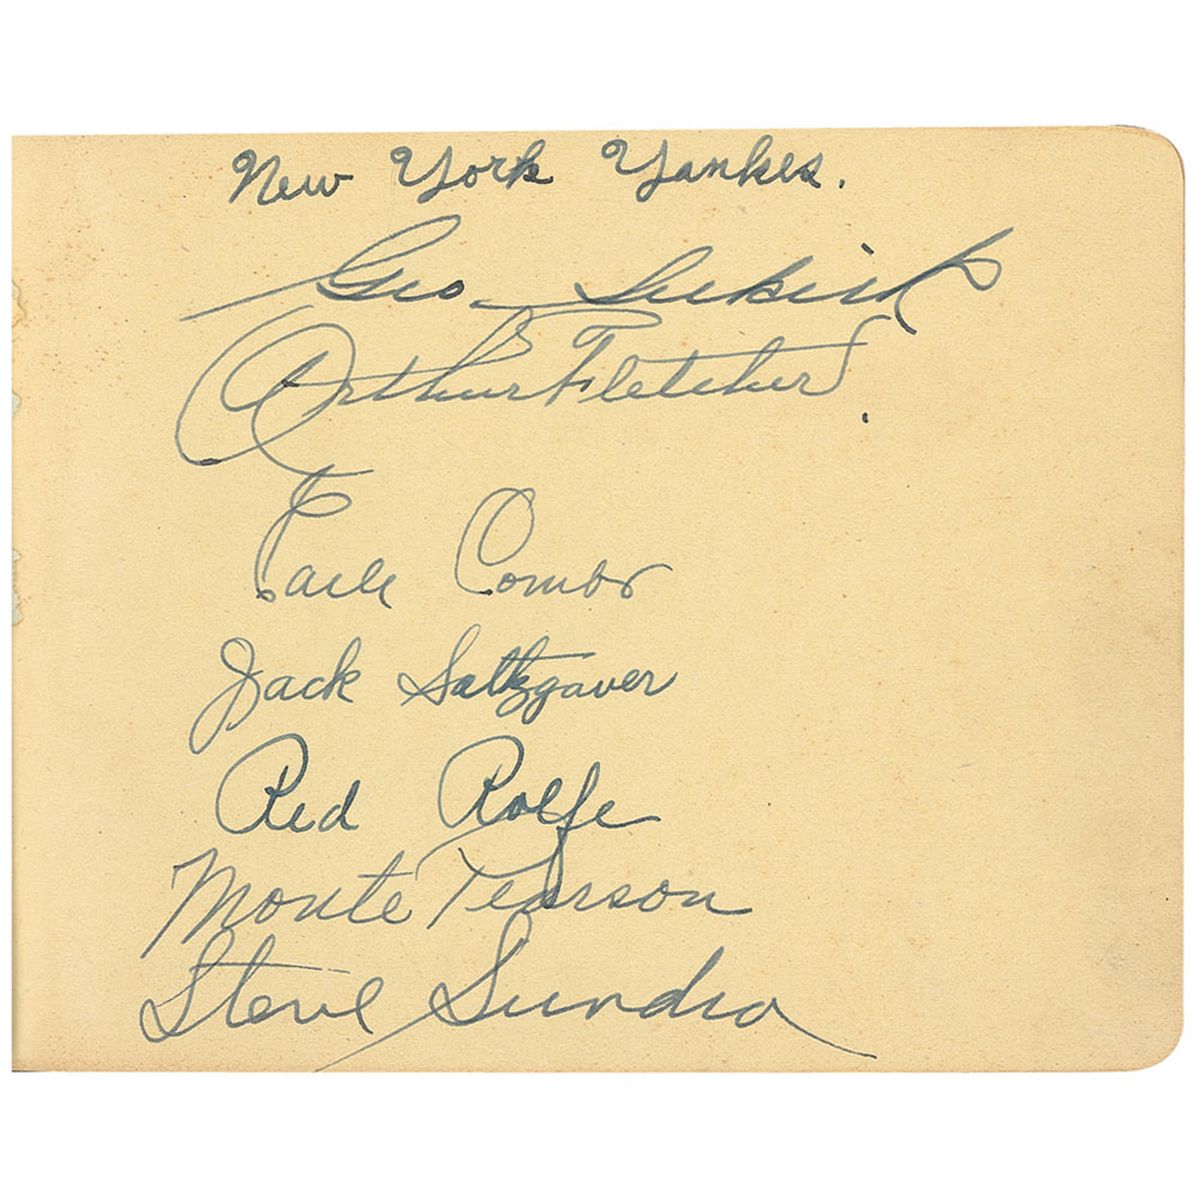 New York Yankes.
Geo. Selkirk
Arthur Fletcher.
Earle Combs
Jack Saltzgaver
Red Rolfe
Monte Pearson
Steve Sundra